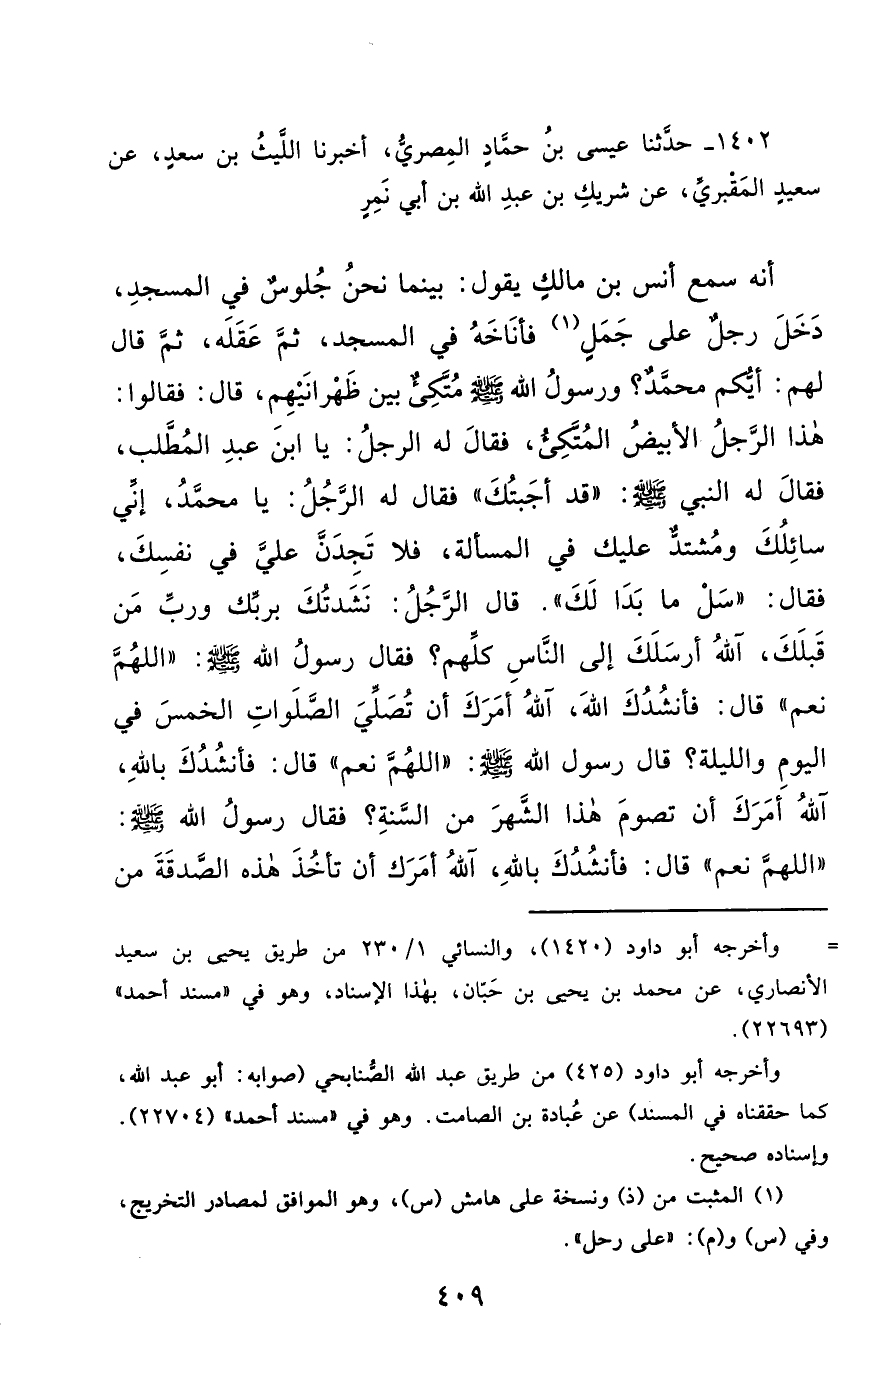 ١٤٠٢ـ حدَّثنا عيسى بنُ حمَّادٍ المِصريُّ، أخبرنا اللَّيثُ بن سعدٍ، عن
سعيدٍ المَقْبريِّ، عن شريكِ بن عبدِ الله بن أبي نَمِرٍ
أنه سمع أنس بن مالكٍ يقول: بينما نحنُ جُلوسٌ في المسجدِ،
دَخَلَ رجلٌ على جَمَلٍ(١) فأنَاخَهُ في المسجد، ثمَّ عَقَلَه، ثمَّ قال
لهم: أيُّكم محمَّدٌ؟ ورسولُ الله ﷺ مُتَّكِئٌ بين ظَهْرانَيْهِم، قال: فقالوا:
هٰذا الرَّجلُ الأبيضُ المُتَّكِئُ، فقالَ له الرجلُ: يا ابنَ عبدِ المُطَّلب،
فقالَ له النبي ﷺ: «قد أجَبتُكَ» فقال له الرَّجُلُ: يا محمَّدُ، إنِّي
سائِلُكَ ومُشتدٌّ عليك في المسألة، فلا تَجِدَنَّ عليَّ في نفسِكَ،
فقال: «سَلْ ما بَدَا لَكَ». قال الرَّجُلُ: نَشَدتُكَ بربِّك وربِّ مَن
قَبلَكَ، آللهُ أرسَلَكَ إلى النَّاسِ كلِّهم؟ فقال رسولُ الله ﷺ: «اللهُمَّ
نعم» قال: فأنشُدُكَ اللهَ، آللهُ أمَرَكَ أن تُصَلِّيَ الصَّلَواتِ الخمسَ في
اليومِ والليلة؟ قال رسول الله ﷺ: «اللهُمَّ نعم» قال: فأنشُدُكَ باللهِ،
آللهُ أمَرَكَ أن تصومَ هٰذا الشَّهرَ من السَّنةِ؟ فقال رسولُ الله ﷺ:
«اللهمَّ نعم» قال: فأنشُدُكَ باللهِ، آللهُ أمَرَك أن تأخُذَ هٰذه الصَّدقَةَ من
= وأخرجه أبو داود (١٤٢٠)، والنسائي ١/ ٢٣٠ من طريق يحيى بن سعيد
الأنصاري، عن محمد بن يحيى بن حَبّان، بهٰذا الإسناد، وهو في «مسند أحمد»
(٢٢٦٩٣).
وأخرجه أبو داود (٤٢٥) من طريق عبد الله الصُّنابحي (صوابه: أبو عبد الله،
كما حققناه في المسند) عن عُبادة بن الصامت. وهو في «مسند أحمد» (٢٢٧٠٤).
وإسناده صحيح.
(١) المثبت من (ذ) ونسخة على هامش (س)، وهو الموافق لمصادر التخريج،
وفي (س) و(م): «على رحل».
٤٠٩